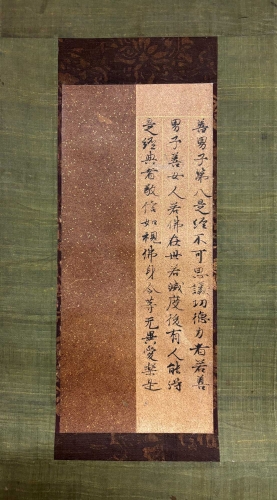 善男子第八是經不可思議功德力者若善
男子善女人若佛在世若滅度後有人能得
是經典者敬信如視佛身令等无異愛樂是